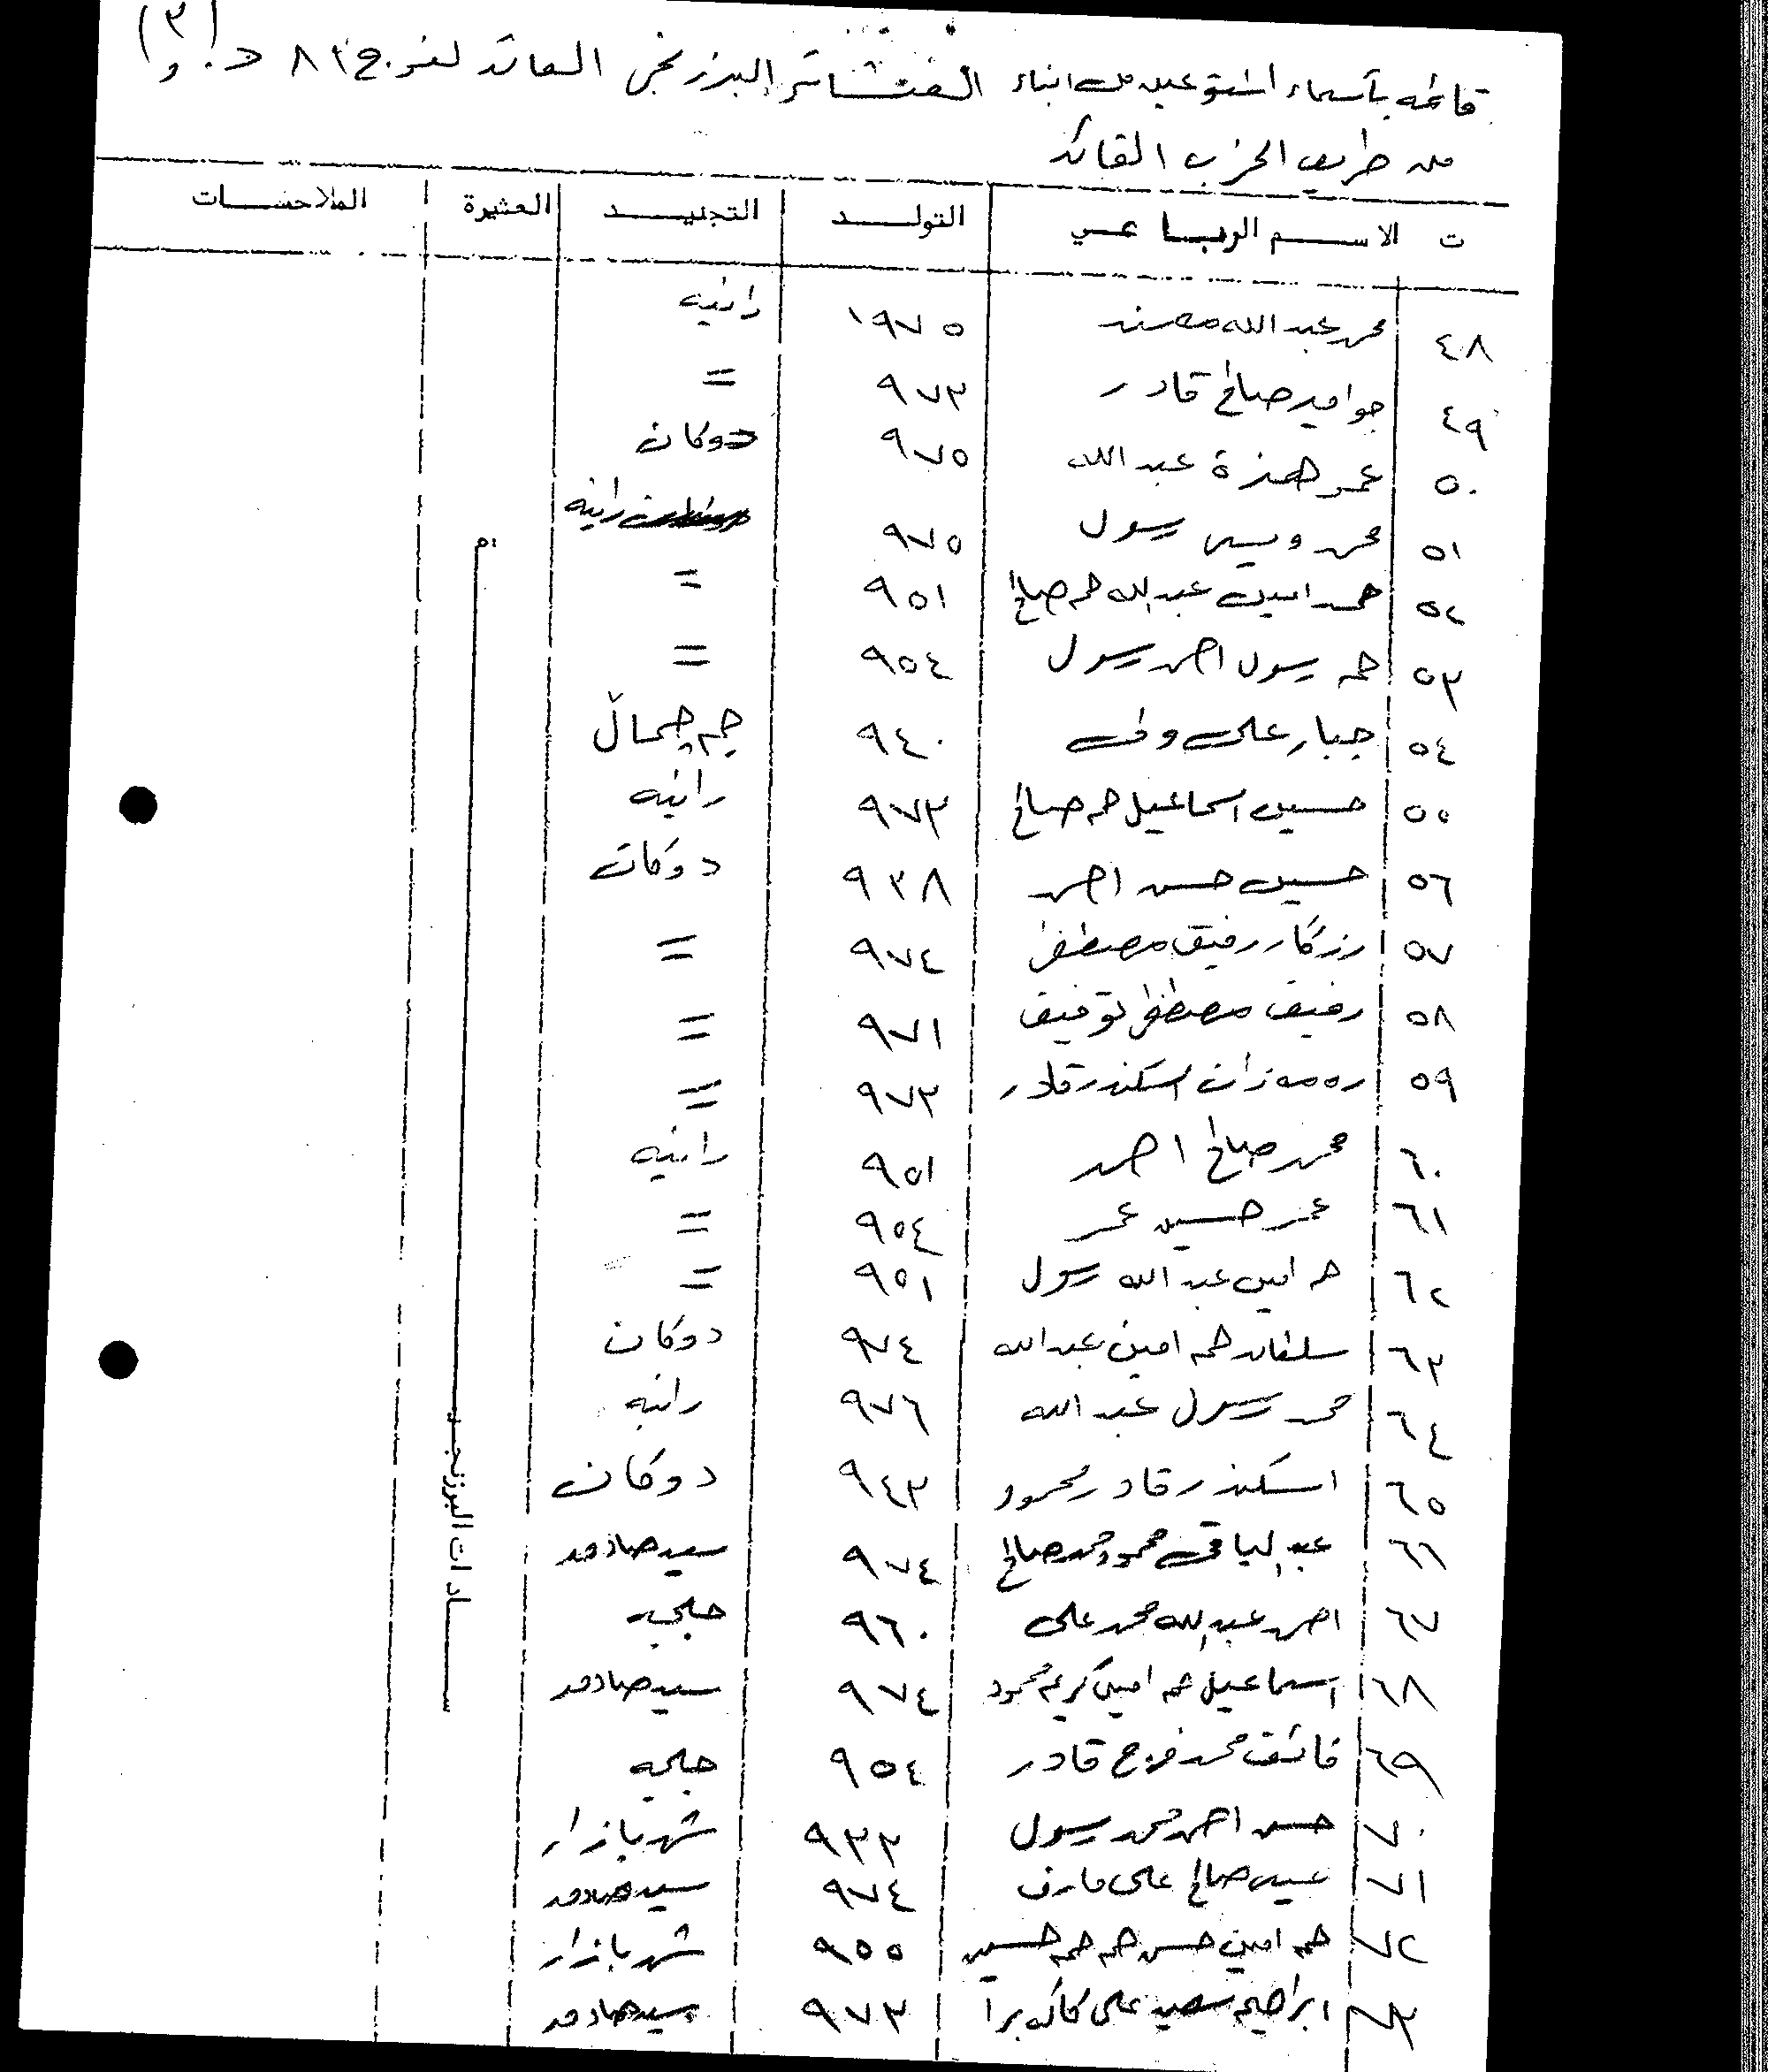 (٣)
قائمة بأسماء المستوعبين من ابناء العشائر البرزنجي العائد لفوج ٨٣ د. و
من طريق الحزب القائد
ت الاسم الرباعي التولد التجنيد العشيرة الملاحظات
٤٨ محمد عبدالله ١٩٧٥ رانيه
٤٩ جوامير صالح قادر ٩٧٣ =
٥٠ عمر حمزة عبدالله ٩٧٥ دوكان
٥١ محمد ويسي رسول ٩٧٥ رانيه
٥٢ محمد امين عبدالله حمه صالح ٩٥١ =
٥٣ حمه رسول احمد رسول ٩٥٤ =
٥٤ جبار علي وفي ٩٤٠ چم چمال
٥٥ حسين اسماعيل حمه صالح ٩٧٣ رانيه
٥٦ حسين حسن احمد ٩٣٨ دوكان
٥٧ رزكار رفيق مصطفى ٩٧٤ =
٥٨ رفيق مصطفى توفيق ٩٧١ =
٥٩ ره مه زان اسكندر قادر ٩٧٣ =
٦٠ محمد صالح احمد ٩٥١ رانيه
٦١ عمر حسين عمر ٩٥٤ =
٦٢ حمه امين عبدالله رسول ٩٥١ =
٦٣ حمه امين عبدالله ٩٧٤ دوكان
٦٤ محمد رسول عبدالله ٩٧٦ رانيه
٦٥ اسكندر قادر محمود ٩٤٣ دوكان
٦٦ عبدالباقي محمود محمد صالح ٩٧٤ سيد صادق
٦٧ احمد عبدالله محمد علي ٩٦٠ حلبجه
٦٨ اسماعيل حمه امين كريم محمود ٩٧٤ سيد صادق
٦٩ فائق محمد فرج قادر ٩٥٤ حلبجه
٧٠ حسن احمد محمد رسول ٩٣٣ شهربازار
٧١ صالح علي عارف ٩٧٤ سيد صادق
٧٢ حمه امين حسن حمه حمه حسين ٩٥٥ شهربازار
٧٣ ابراهيم سعيد علي كاكه برا ٩٧٣ سيد صادق
سادات البرزنجه